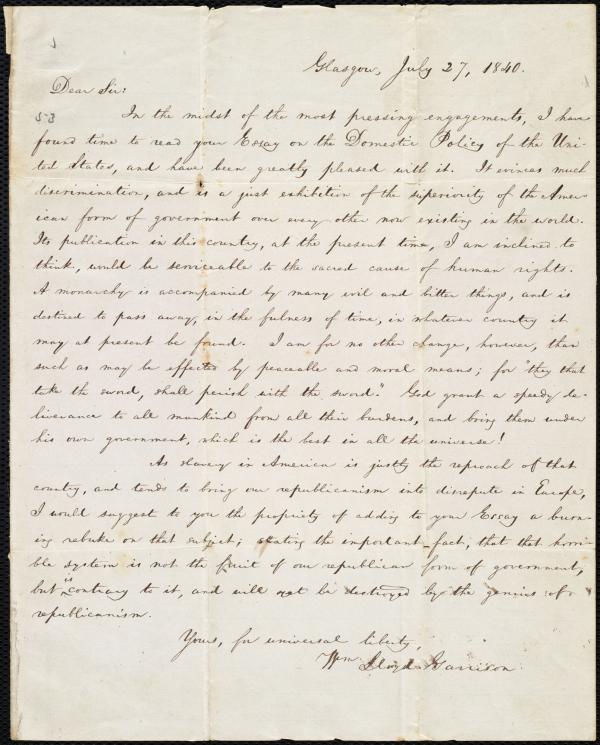 Glasgow, July 27, 1840.
Dear Sir:
In the midst of the most pressing engagements, I have
found time to read your Essay on the Domestic Policy of the Uni-
ted States, and have been greatly pleased with it. It evinces much
discrimination, and is a just exhibition of the superiority of the Amer-
ican form of government over every other now existing in the world.
Its publication in this country, at the present time, I am inclined to
think, would be serviceable to the sacred cause of human rights.
A monarchy is accompanied by many evil and bitter things, and is
destined to pass away, in the fulness of time, in whatever country it
may at present be found. I am for no other change, however, than
such as may be effected by peaceable and moral means; for "they that
take the sword, shall perish with the sword." God grant a speedy de-
liverance to all mankind from all their burdens, and bring them under
his own government, which is the best in all the universe!
As slavery in America is justly the reproach of that
country, and tends to bring our republicanism into disrepute in Europe,
I would suggest to you the propriety of adding to your Essay a burn-
ing rebuke on that subject; stating the important fact, that that horri-
ble system is not the fruit of our republican form of government,
but is contrary to it, and will yet be destroyed by the genius of
republicanism.
Yours, for universal liberty,
Wm. Lloyd Garrison.